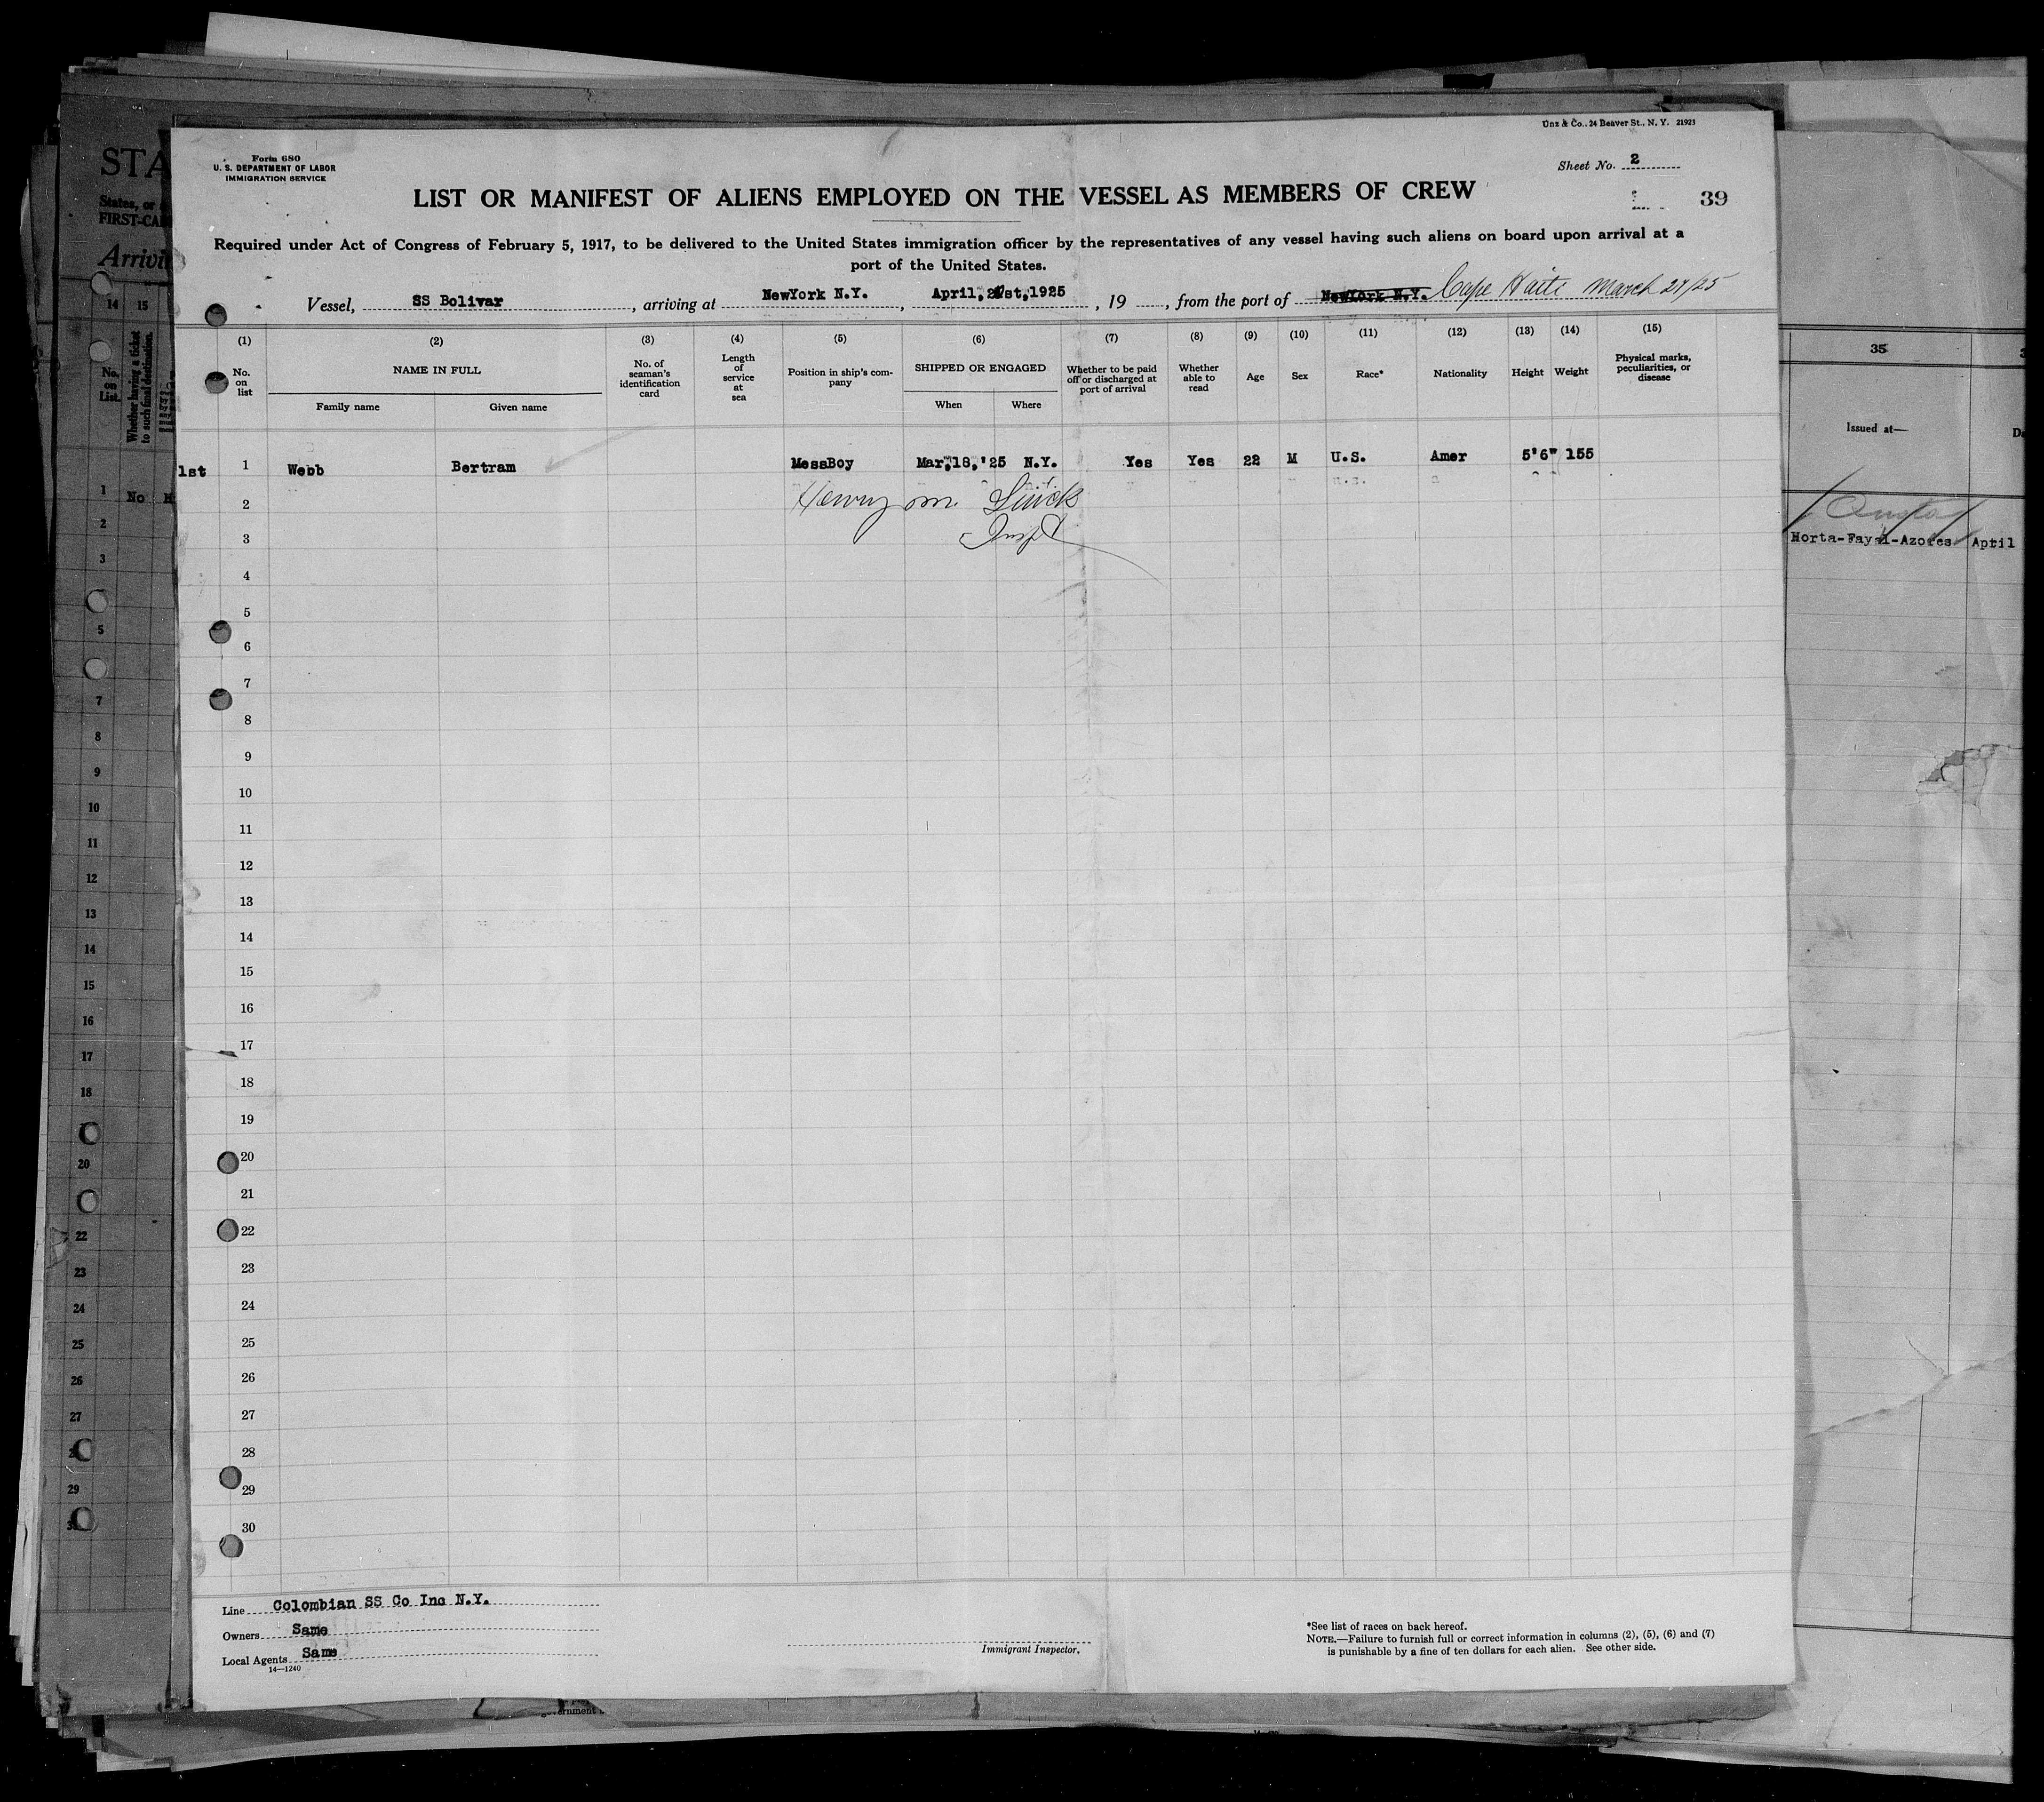 Unz & Co., 24 Beaver St., N. Y. 21923
Form 680
U. S. DEPARTMENT OF LABOR
IMMIGRATION SERVICE
Sheet No. 2
39
LIST OR MANIFEST OF ALIENS EMPLOYED ON THE VESSEL AS MEMBERS OF CREW
Required under Act of Congress of February 5, 1917, to be delivered to the United States immigration officer by the representatives of any vessel having such aliens on board upon arrival at a
port of the United States.
Vessel, SS Bolivar, arriving at NewYork N.Y., April, 1st,1925, 19, from the port of NewYork N.Y. Cape Haiti March 27/25
(1) (2) (3) (4) (5) (6) (7) (8) (9) (10) (11) (12) (13) (14) (15)
No. on list
NAME IN FULL
Family name Given name
No. of seaman's identification card
Length of service at sea
Position in ship's company
SHIPPED OR ENGAGED
When Where
Whether to be paid off or discharged at port of arrival
Whether able to read
Age
Sex
Race*
Nationality
Height
Weight
Physical marks, peculiarities, or disease
1st 1 Webb Bertram MessBoy Mar,18,'25 N.Y. Yes Yes 22 M U.S. Amer 5'6" 155
2 Henry M.
3 Inspt
4
5
6
7
8
9
10
11
12
13
14
15
16
17
18
19
20
21
22
23
24
25
26
27
28
29
30
Line Colombian SS Co Inc N.Y.
Owners Same
Local Agents Same
14—1240
Immigrant Inspector.
*See list of races on back hereof.
NOTE.—Failure to furnish full or correct information in columns (2), (5), (6) and (7)
is punishable by a fine of ten dollars for each alien. See other side.
STA
States, or
FIRST-CA
Arrivi
14 15
No. on List.
Whether having a ticket to such final destination.
1 No H
2
3
5
7
8
9
10
11
12
13
14
15
16
17
18
20
22
23
24
25
26
27
29
35
Issued at—
Horta-Fayal-Azores April